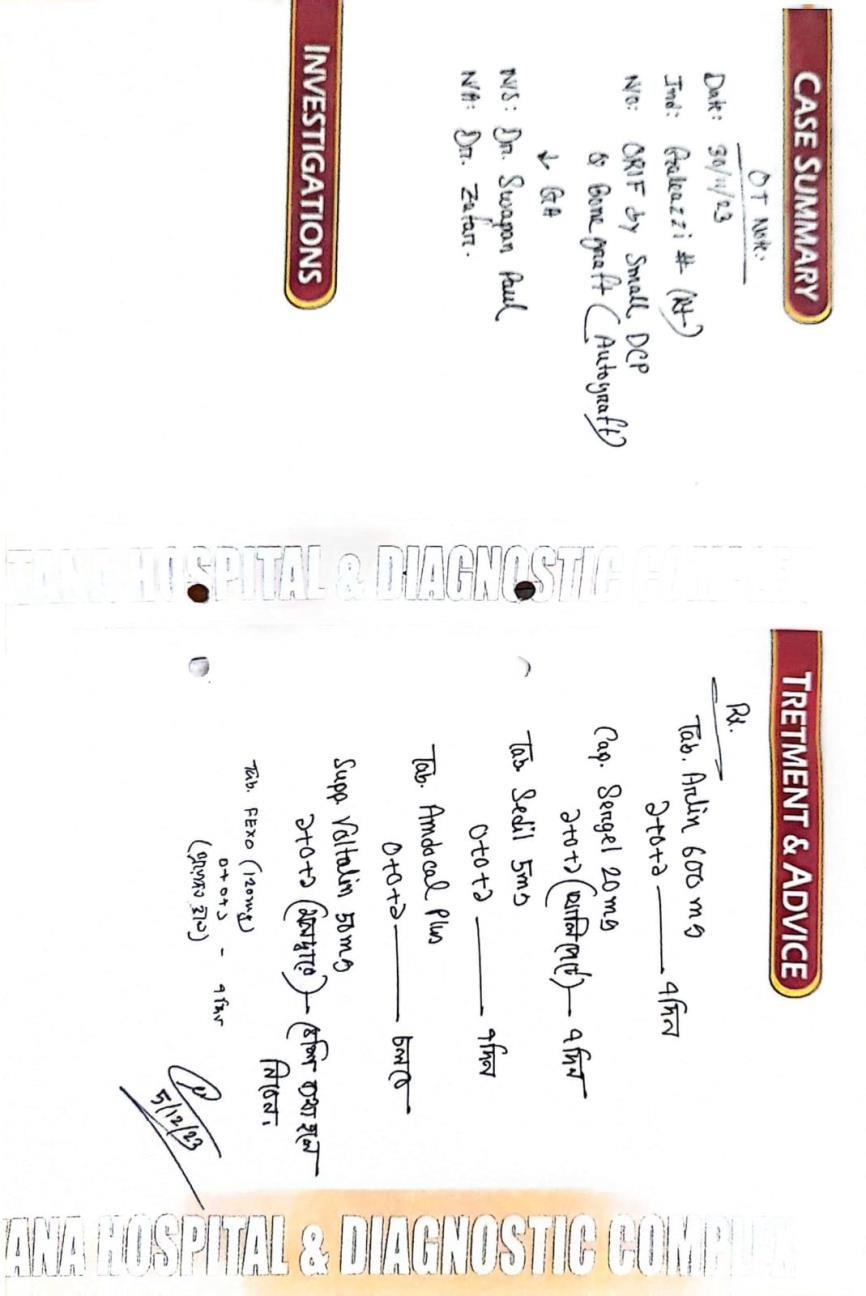 CASE SUMMARY
OT Note:
Date: 30/11/23
Ind: Galeazzi # (Rt)
N/O: ORIF by Small DCP
& Bone graft (Autograft)
↓ GA
N/S: Dr. Swapan Paul
N/A: Dr. Zafar.
INVESTIGATIONS
TANA HOSPITAL & DIAGNOSTIC COMPLEX
TRETMENT & ADVICE
Rx.
Tab. Arlin 600 mg
১+০+১ — ৭ দিন
Cap. Sergel 20mg
১+০+১ (খালিপেটে) — ৭ দিন
Tab. Sedil 5mg
০+০+১ — ৭ দিন
Tab. Amdocal Plus
০+০+১ — চলবে
Supp Voltalin 50mg
১+০+১ (মলদ্বারে) — (বেশি ব্যথা হলে
নিবেন।
Tab. FEXO (120mg)
০+০+১ - ৭ দিন
5/12/23
ANA HOSPITAL & DIAGNOSTIC COMPLEX